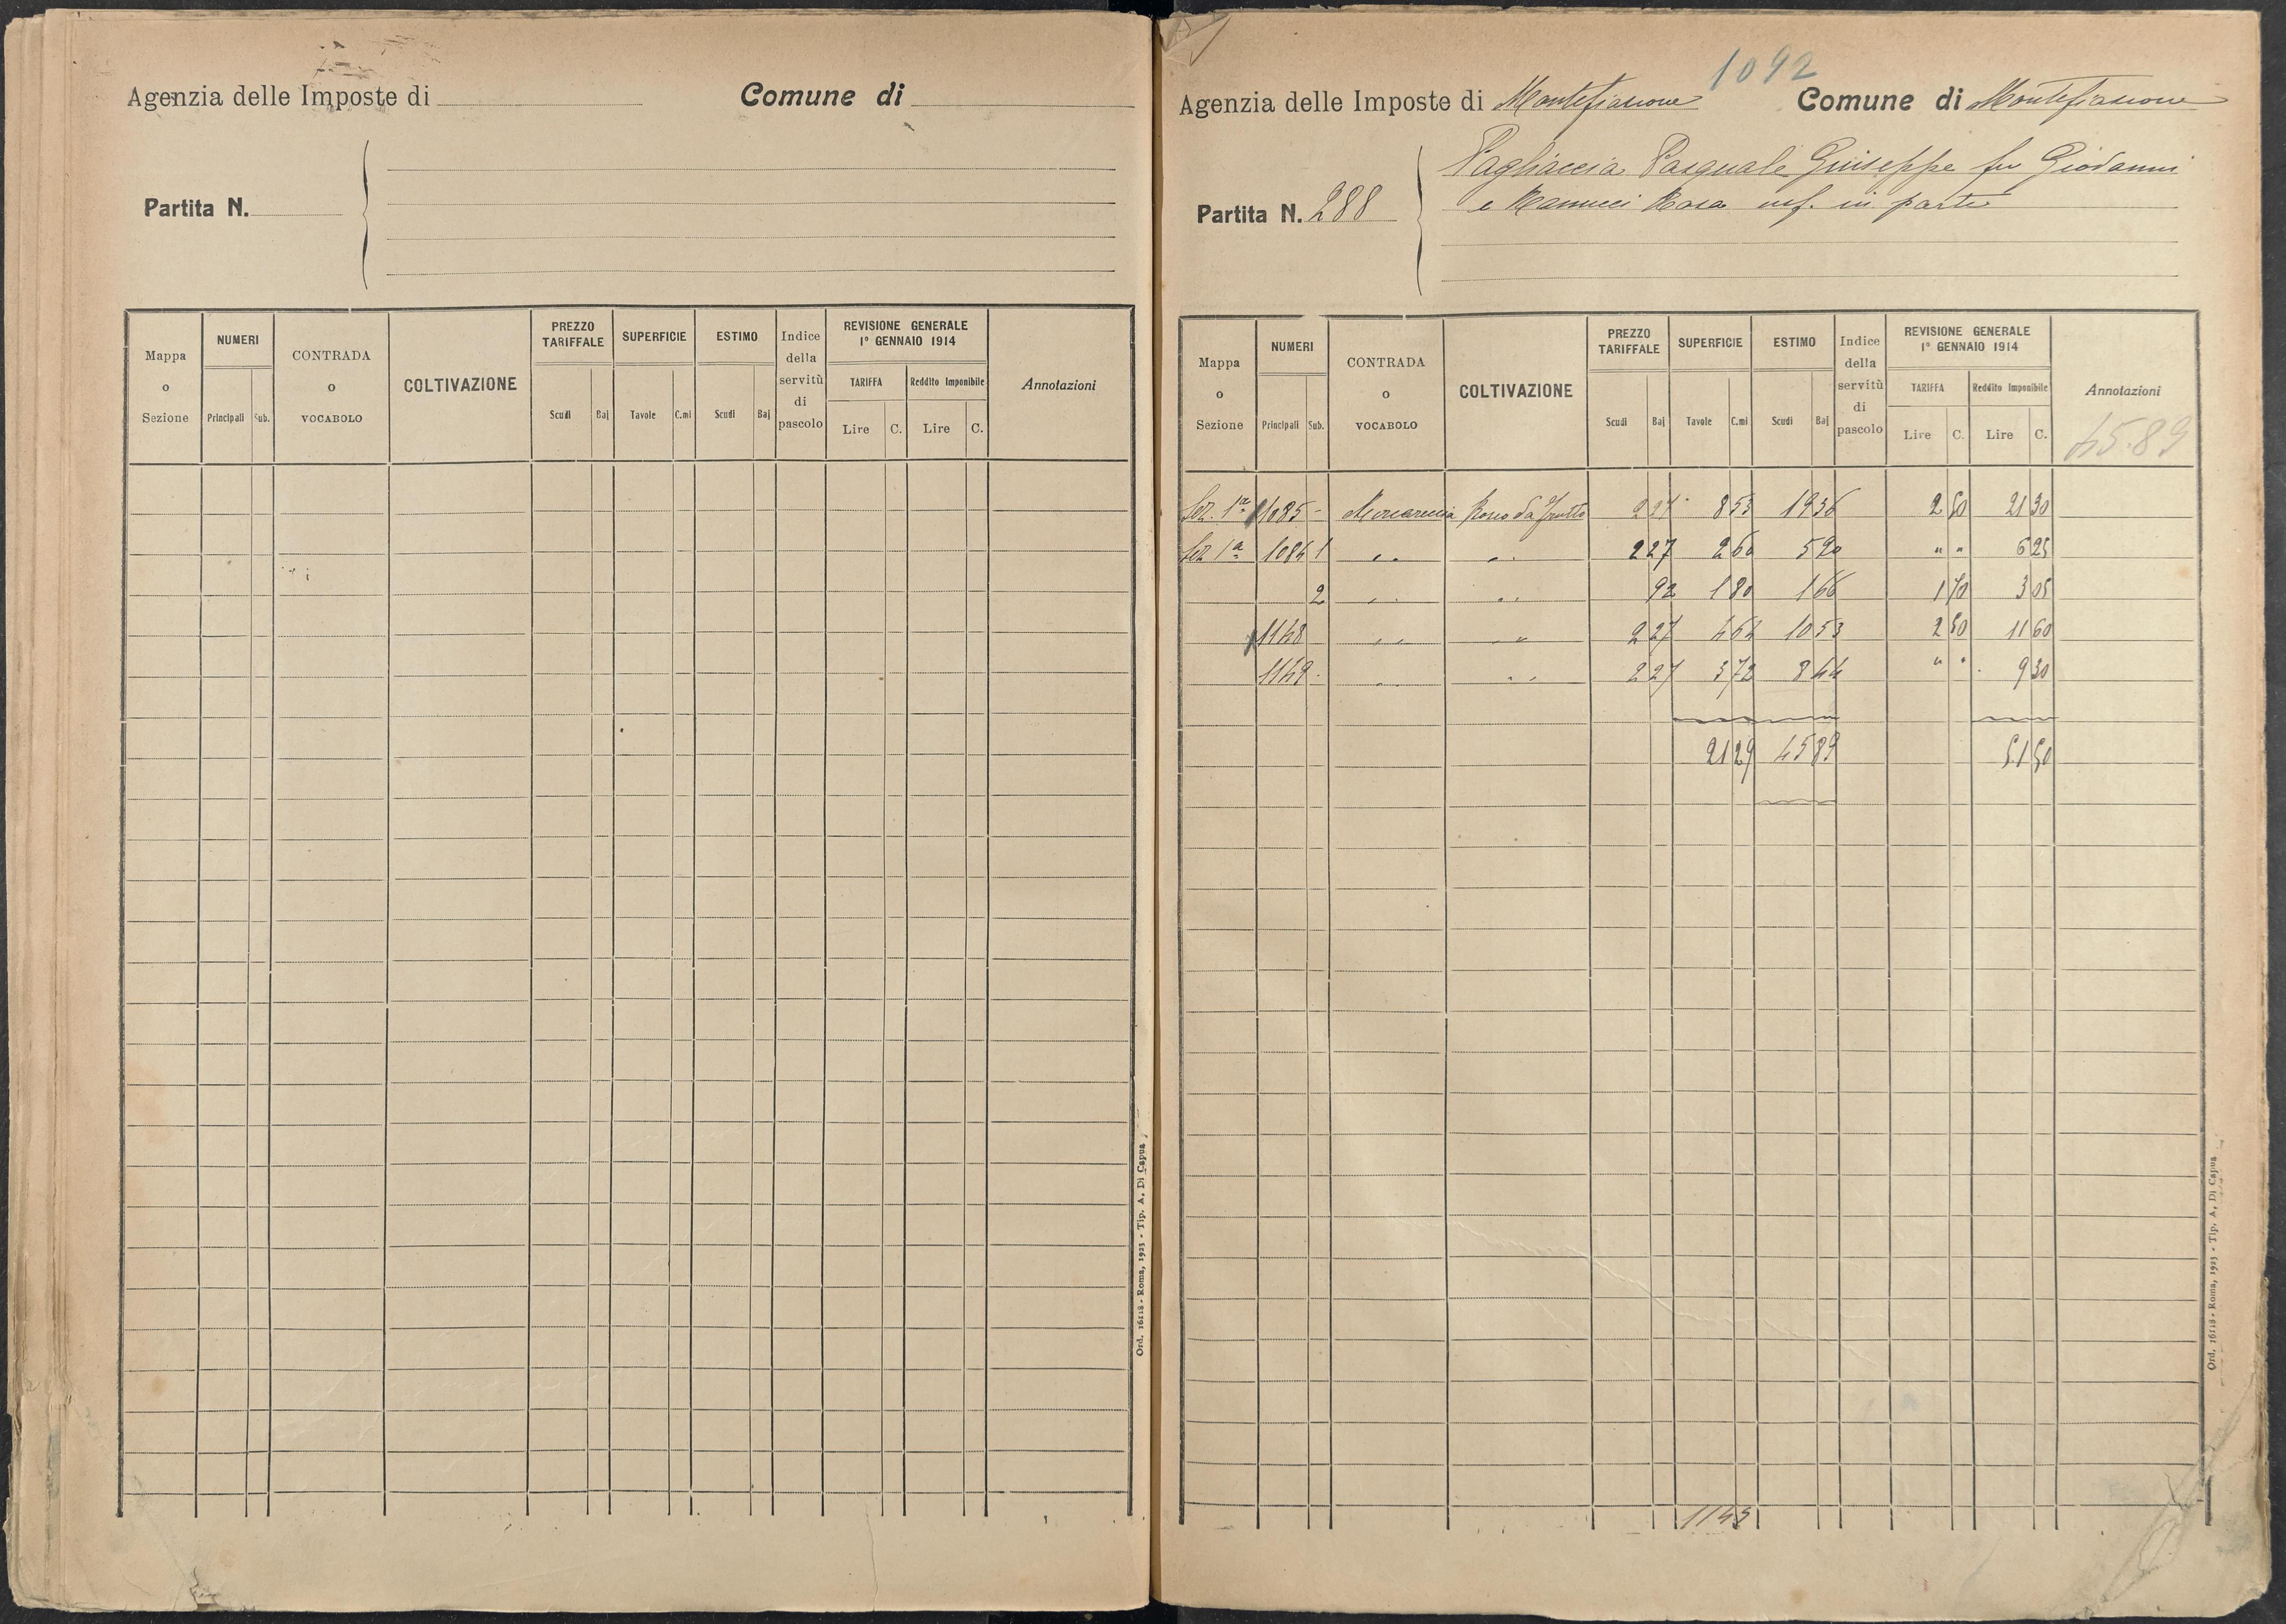 Agenzia delle Imposte di
Comune di
Partita N.
Mappa o Sezione
NUMERI
Principali Sub.
CONTRADA o VOCABOLO
COLTIVAZIONE
PREZZO TARIFFALE
Scudi Baj
SUPERFICIE
Tavole C.mi
ESTIMO
Scudi Baj
Indice della servitù di pascolo
REVISIONE GENERALE 1° GENNAIO 1914
TARIFFA Reddito Imponibile
Lire C. Lire C.
Annotazioni
Ord. 16118 - Roma, 1923 - Tip. A. Di Capua
1092
Agenzia delle Imposte di Montefiascone Comune di Montefiascone
Pagliaccia Pasquale Giuseppe fu Giovanni
Partita N. 288
e Mannucci Rosa usf. in parte
Mappa o Sezione
NUMERI
Principali Sub.
CONTRADA o VOCABOLO
COLTIVAZIONE
PREZZO TARIFFALE
Scudi Baj
SUPERFICIE
Tavole C.mi
ESTIMO
Scudi Baj
Indice della servitù di pascolo
REVISIONE GENERALE 1° GENNAIO 1914
TARIFFA Reddito Imponibile
Lire C. Lire C.
Annotazioni
45.89
Sez. 1ª 1085 - da frutto 2 27 8 53 19 36 2 50 21 30
Sez. 1ª 1086 1 " " 2 27 2 60 5 90 " " 6 25
2 " " 92 1 80 1 66 1 70 3 05
1148 " " 2 27 4 64 10 53 2 50 11 60
1149 - " " 2 27 3 72 8 44 " " 9 30
21 29 45 89 51 50
1143
Ord. 16118 - Roma, 1923 - Tip. A. Di Capua